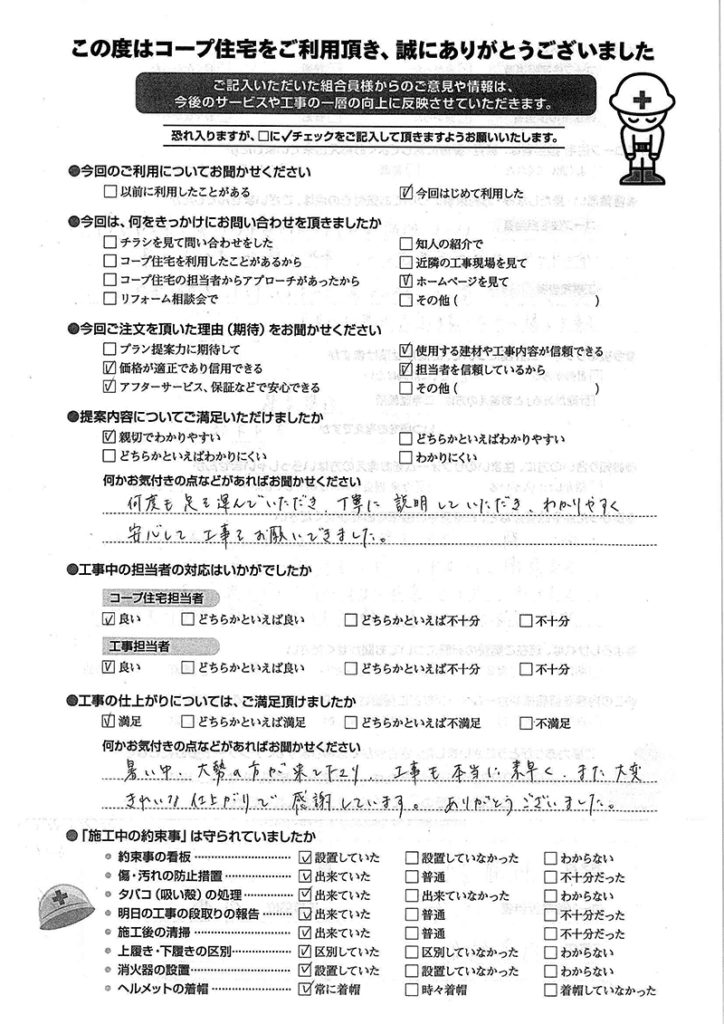 この度はコープ住宅をご利用頂き、誠にありがとうございました
ご記入いただいた組合員様からのご意見や情報は、
今後のサービスや工事の一層の向上に反映させていただきます。
恐れ入りますが、□に✓チェックをご記入して頂きますようお願いいたします。
●今回のご利用についてお聞かせください
□以前に利用したことがある ☑今回はじめて利用した
●今回は、何をきっかけにお問い合わせを頂きましたか
□チラシを見て問い合わせをした □知人の紹介で
□コープ住宅を利用したことがあるから □近隣の工事現場を見て
□コープ住宅の担当者からアプローチがあったから ☑ホームページを見て
□リフォーム相談会で □その他( )
●今回ご注文を頂いた理由(期待)をお聞かせください
□プラン提案力に期待して ☑使用する建材や工事内容が信頼できる
☑価格が適正であり信用できる ☑担当者を信頼しているから
☑アフターサービス、保証などで安心できる □その他( )
●提案内容についてご満足いただけましたか
☑親切でわかりやすい □どちらかといえばわかりやすい
□どちらかといえばわかりにくい □わかりにくい
何かお気付きの点などがあればお聞かせください
何度も足を運んでいただき、丁寧に説明していただき、わかりやすく
安心して工事をお願いできました。
●工事中の担当者の対応はいかがでしたか
コープ住宅担当者
☑良い □どちらかといえば良い □どちらかといえば不十分 □不十分
工事担当者
☑良い □どちらかといえば良い □どちらかといえば不十分 □不十分
●工事の仕上がりについては、ご満足頂けましたか
☑満足 □どちらかといえば満足 □どちらかといえば不満足 □不満足
何かお気付きの点などがあればお聞かせください
暑い中、大勢の方が来て下さり、工事も本当に素早く、また大変
きれいな仕上がりで感謝しています。ありがとうございました。
●「施工中の約束事」は守られていましたか
約束事の看板 ☑設置していた □設置していなかった □わからない
傷・汚れの防止措置 ☑出来ていた □普通 □不十分だった
タバコ(吸い殻)の処理 ☑出来ていた □出来ていなかった □わからない
明日の工事の段取りの報告 ☑出来ていた □普通 □不十分だった
施工後の清掃 ☑出来ていた □普通 □不十分だった
上履き・下履きの区別 ☑区別していた □区別していなかった □わからない
消火器の設置 ☑設置していた □設置していなかった □わからない
ヘルメットの着帽 ☑常に着帽 □時々着帽 □着帽していなかった